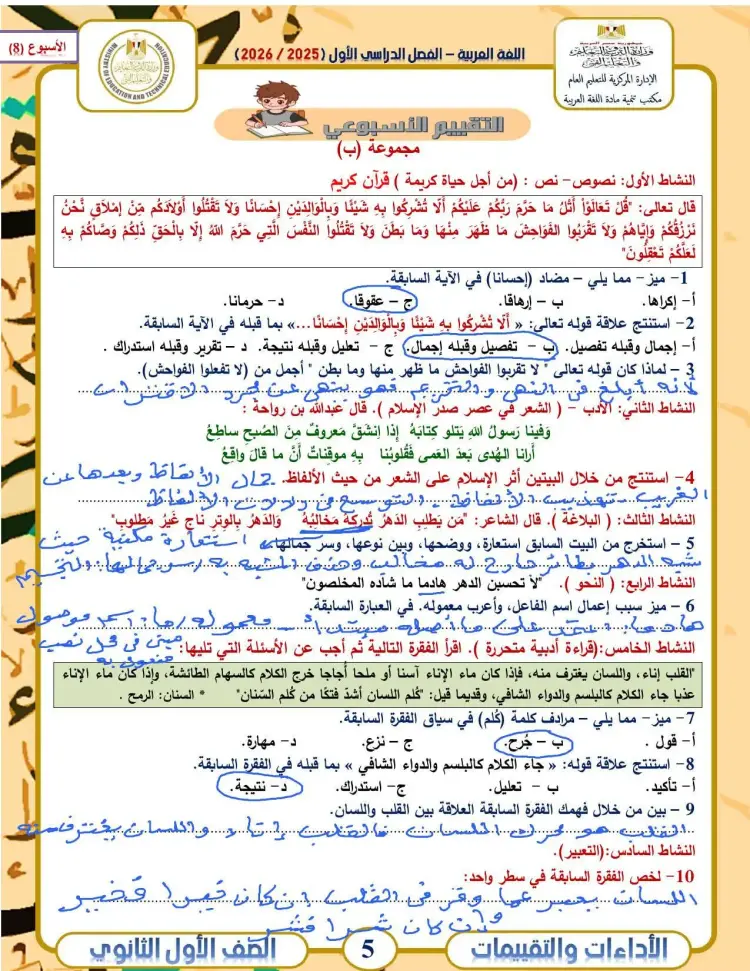 الأسبوع (8)
اللغة العربية – الفصل الدراسي الأول (2025 / 2026)
الإدارة المركزية للتعليم العام
مكتب تنمية مادة اللغة العربية
MINISTRY OF EDUCATION AND TECHNICAL EDUCATION
التقييم الأسبوعي
مجموعة (ب)
النشاط الأول: نصوص- نص : (من أجل حياة كريمة ) قرآن كريم
قال تعالى: "قُلْ تَعَالَوْا أَتْلُ مَا حَرَّمَ رَبُّكُمْ عَلَيْكُمْ أَلَّا تُشْرِكُوا بِهِ شَيْئًا وَبِالْوَالِدَيْنِ إِحْسَانًا وَلَا تَقْتُلُوا أَوْلَادَكُم مِّنْ إِمْلَاقٍ نَّحْنُ
نَرْزُقُكُمْ وَإِيَّاهُمْ وَلَا تَقْرَبُوا الْفَوَاحِشَ مَا ظَهَرَ مِنْهَا وَمَا بَطَنَ وَلَا تَقْتُلُوا النَّفْسَ الَّتِي حَرَّمَ اللهُ إِلَّا بِالْحَقِّ ذَلِكُمْ وَصَّاكُمْ بِهِ
لَعَلَّكُمْ تَعْقِلُونَ"
1- ميز- مما يلي – مضاد (إحسانا) في الآية السابقة.
أ- إكراها. ب – إرهاقا. ج – عقوقا. د- حرمانا.
2- استنتج علاقة قوله تعالى: « أَلَّا تُشْرِكُوا بِهِ شَيْئًا وَبِالْوَالِدَيْنِ إِحْسَانًا...» بما قبله في الآية السابقة.
أ- إجمال وقبله تفصيل. ب - تفصيل وقبله إجمال. ج - تعليل وقبله نتيجة. د – تقرير وقبله استدراك .
3 – لماذا كان قوله تعالى " لا تقربوا الفواحش ما ظهر منها وما بطن " أجمل من (لا تفعلوا الفواحش).
لأنه أبلغ فى النهى والتحريم فهو ينهى عن مجرد الاقتراب
النشاط الثاني: الأدب – ( الشعر في عصر صدر الإسلام ). قال عبدالله بن رواحة :
وَفينا رَسولُ اللهِ يَتلو كِتابَهُ إِذا اِنشَقَّ مَعروفٌ مِنَ الصُبحِ ساطِعُ
أَرانا الهُدى بَعدَ العَمى فَقُلوبُنا بِهِ موقِناتٌ أَنَّ ما قالَ واقِعُ
4- استنتج من خلال البيتين أثر الإسلام على الشعر من حيث الألفاظ. جمال الألفاظ وبعدها عن
الغريب - تهذيب الألفاظ - التوسع فى دلالات الألفاظ
النشاط الثالث: ( البلاغة ). قال الشاعر: "مَن يَطلِبِ الدَهرُ تُدرِكهُ مَخالِبُهُ وَالدَهرُ بِالوِترِ ناجٍ غَيرُ مَطلوبِ"
5 – استخرج من البيت السابق استعارة، ووضحها، وبين نوعها، وسر جمالها. استعارة مكنية حيث
شبه الدهر بطائر جارح له مخالب وحذف المشبه به وسر جمالها التجسيم
النشاط الرابع: ( النحو ). "لا تحسبن الدهر هادما ما شاده المخلصون"
6 – ميز سبب إعمال اسم الفاعل، وأعرب معموله. في العبارة السابقة.
هادما: يعتمد على ما أصله مبتدأ - معموله (ما): اسم موصول
مبنى فى محل نصب
مفعول به
النشاط الخامس:(قراءة أدبية متحررة ). اقرأ الفقرة التالية ثم أجب عن الأسئلة التي تليها:
"القلب إناء، واللسان يغترف منه، فإذا كان ماء الإناء آسنا أو ملحا أجاجا خرج الكلام كالسهام الطائشة، وإذا كان ماء الإناء
عذبا جاء الكلام كالبلسم والدواء الشافي، وقديما قيل: "كَلم اللسان أشدّ فتكًا من كَلم السِّنان" * السنان: الرمح .
7- ميز- مما يلي – مرادف كلمة (كَلم) في سياق الفقرة السابقة.
أ- قول . ب – جُرح. ج – نزع. د- مهارة.
8- استنتج علاقة قوله: « جاء الكلام كالبلسم والدواء الشافي » بما قبله في الفقرة السابقة.
أ- تأكيد. ب - تعليل. ج- استدراك. د- نتيجة.
9 – بين من خلال فهمك الفقرة السابقة العلاقة بين القلب واللسان.
القلب هو محرك اللسان فالقلب إناء واللسان يغترف منه
النشاط السادس:(التعبير).
10- لخص الفقرة السابقة في سطر واحد:
اللسان يعبر عما وقر فى القلب إن كان خيرا فخير
وإن كان شرا فشر
الأداءات والتقييمات
5
الصف الأول الثانوي